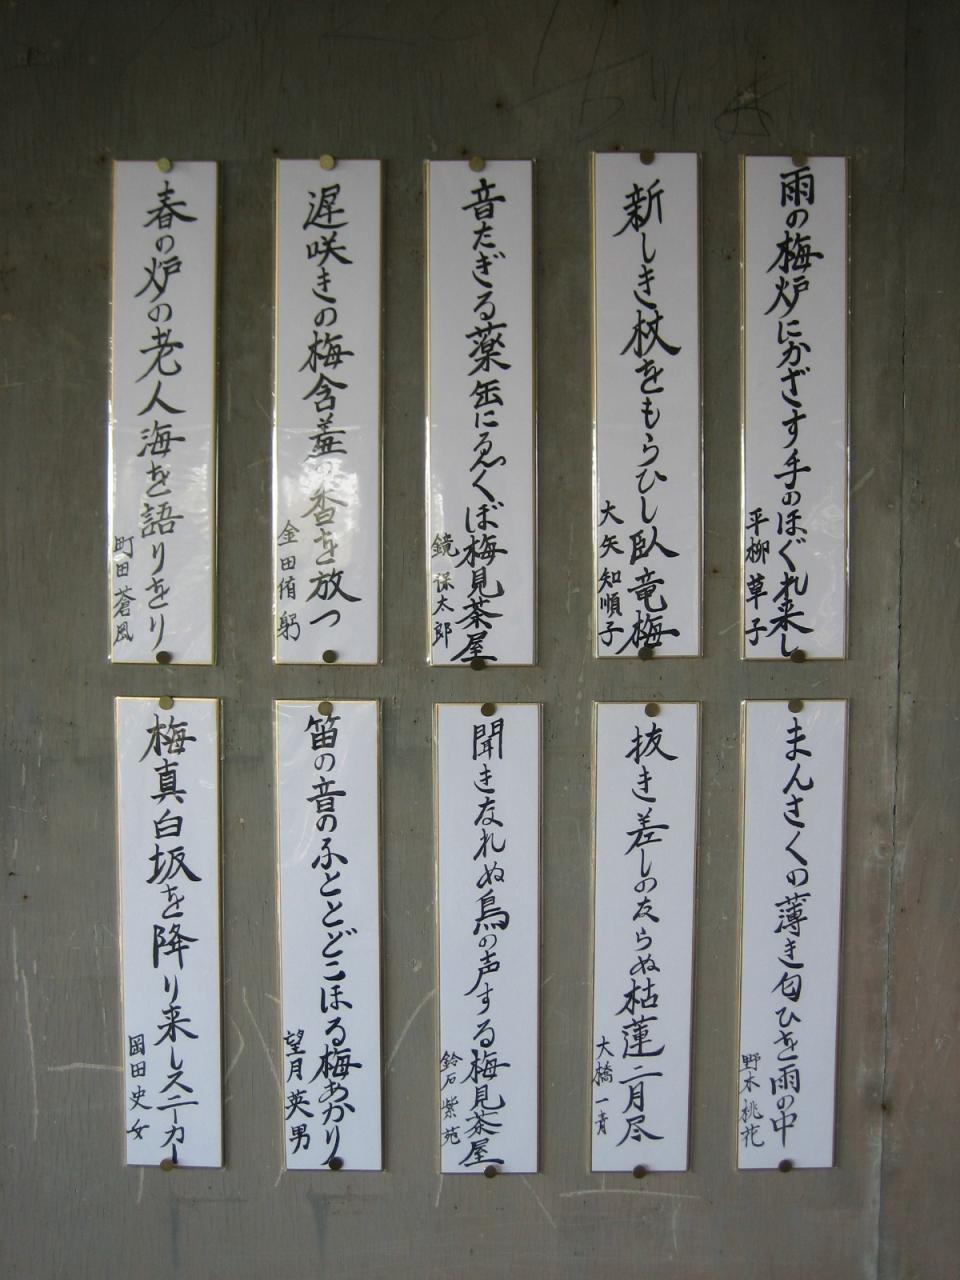 雨の梅炉にかざす手のほぐれ来し
平柳 草子
新しき杖をもらひし臥竜梅
大矢 知順子
音たぎる薬缶にゑくぼ梅見茶屋
鏡 保太郎
遅咲きの梅含羞の香を放つ
金田 躬
春の炉の老人海を語りをり
町田蒼風
まんさくの薄き匂ひを雨の中
野木桃花
抜き差しのならぬ枯蓮二月尽
大橋一青
聞きなれぬ鳥の声する梅見茶屋
鈴石紫苑
笛の音のふととどこほる梅あかり
望月英男
梅真白坂を降り来しスニーカー
岡田史女